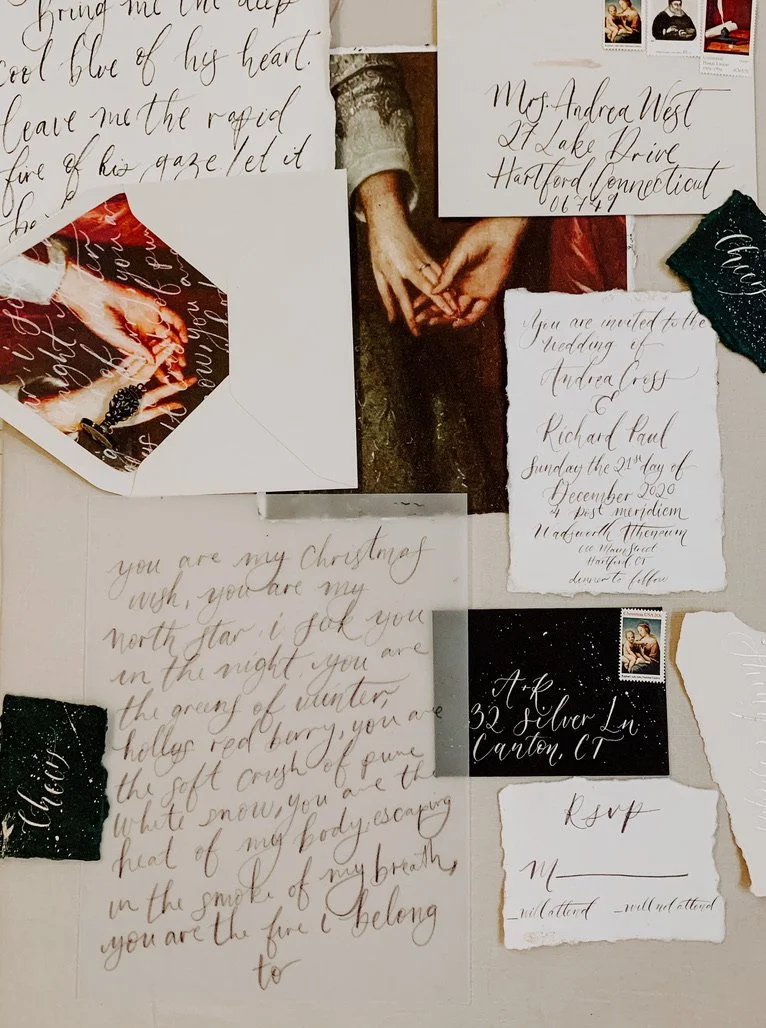 Bring me the deep
cool blue of his heart.
leave me the rapid
fire of his gaze. let it
Mrs. Andrea West
27 Lake Drive
Hartford, Connecticut
06749
Cheers
You are invited to the
wedding of
Andrea Cross
&
Richard Paul
Sunday the 21st day of
December 2020
4 post meridiem
Wadsworth Atheneum
600 Main Street
Hartford, CT
dinner to follow
you are my Christmas
wish, you are my
north star. i seek you
in the night. you are
the greens of winter,
hollys red berry, you are
the soft crush of pure
white snow, you are the
heat of my body, escaping
in the smoke of my breath,
you are the fire i belong
to
Christmas USA 20c
A+R
32 Silver Ln
Canton, CT
Cheers
Rsvp
M
_will attend _will not attend